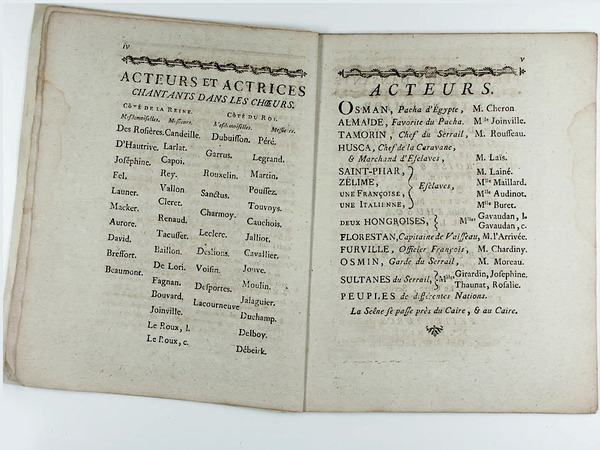 iv
ACTEURS ET ACTRICES
CHANTANTS DANS LES CHŒURS.
CÔTÉ DE LA REINE. CÔTÉ DU ROI.
Mesdemoiselles. Messieurs. Mesdemoiselles. Messieurs.
Des Rosières. Candeille. Dubuisson. Péré.
D'Hautrive. Larlat. Garrus. Legrand.
Joséphine. Capoi. Rouxelin. Martin.
Fel. Rey. Sanctus. Poussez.
Launer. Vallon Charmoy. Touvoys.
Macker. Cleret. Leclerc. Cauchois.
Aurore. Renaud. Deslions. Jalliot.
David. Tacusset. Voisin. Cavallier.
Breffort. Baillon. Desportes. Jouve.
Beaumont. De Lori. Lacourneuve Moulin.
Fagnan. Jalaguier.
Bouvard. Duchamp.
Joinville. Delboy.
Le Roux, l. Débeirk.
Le Roux, c.
v
ACTEURS.
OSMAN, Pacha d'Égypte, M. Cheron
ALMAÏDE, Favorite du Pacha. Mlle Joinville.
TAMORIN, Chef du Serrail, M. Rousseau.
HUSCA, Chef de la Caravane,
& Marchand d'Esclaves, M. Laïs.
SAINT-PHAR, M. Lainé.
ZÉLIME, Esclaves, Mlle Maillard.
UNE FRANÇOISE, Mlle Audinot.
UNE ITALIENNE, Mlle Buret.
DEUX HONGROISES, Mlles Gavaudan, l.
Gavaudan, c.
FLORESTAN, Capitaine de Vaisseau, M. l'Arrivée.
FURVILLE, Officier François, M. Chardiny.
OSMIN, Garde du Serrail, M. Moreau.
SULTANES du Serrail, Mlles Girardin, Josephine.
Thaunat, Rosalie.
PEUPLES de différentes Nations.
La Scêne se passe près du Caire, & au Caire.